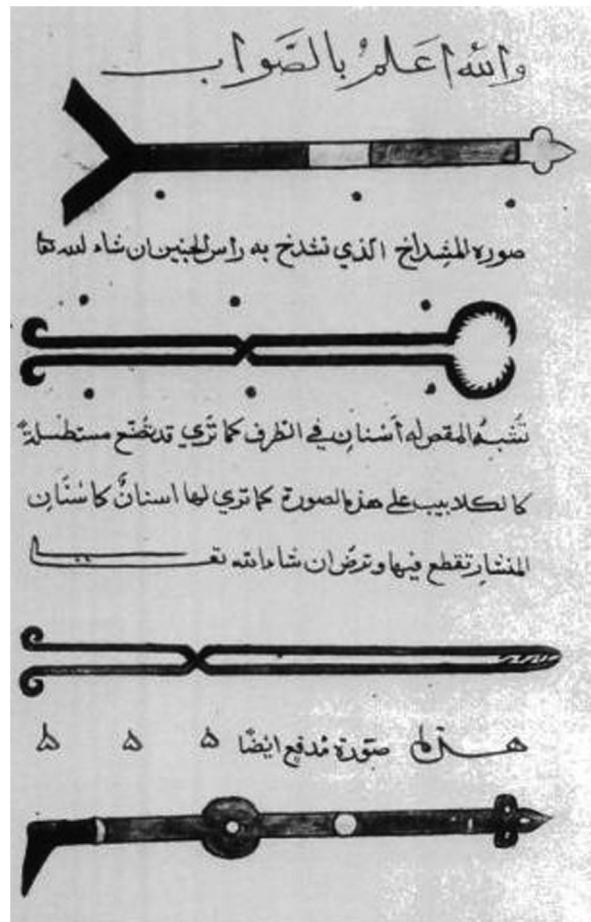 والله اعلمُ بالصَّواب
صوره المشِداخ الذي تشدخ به راس الجنين ان شاء الله تعا
تُشبهُ المقص له أسْنان في الطرف كما تُري قد تُصنَع مستطيلةً
كالكلاليب على هذه الصورة كما تري لها اسنانٌ كاسْنَان
المنشار تقطع فيها وترضّ ان شاء الله تعــلى
هــذه صوَرة مُدفع ايضًا ه ه ه